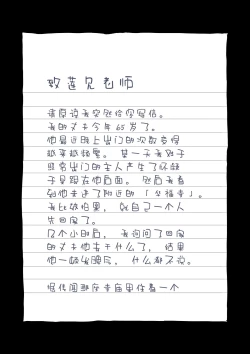 致莲见老师
请原谅我突然给您写信。
我的丈夫今年65岁了。
他最近晚上出门的次数变得
越来越频繁。某一天我对于
经常出门的丈夫产生了怀疑
于是跟在他后面。然后我看
到他走进了附近的「公福寺」。
我比较怕黑，就自己一个人
先回家了。
几个小时后，我询问了回家
的丈夫他去干什么了，结果
他一顿发脾气，什么都不说。
据传闻那座寺庙里住着一个